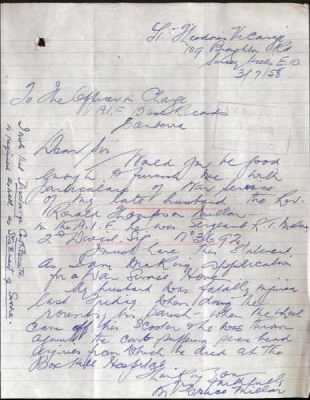 St Theodore's Vicarage
109 Broughton Rd
Surrey Hills E.10
3/7/58
To The Officer in Charge
A.I.F. Base Records
Canberra
Dear Sir
Would you be good
enough to furnish me with
particulars of War service
of my late husband the Rev.
Ronald Thompson Millar
in the A.I.F. he was Sergeant R.T. Millar
2nd Divsl. Sig No 3692.
I must have this Statement
as I am making application
for a War Service Home.
My husband was fatally injured
last Friday when doing the
rounds of his parish when the wheel
came off his scooter & he was thrown
against the curb suffering severe head
injuries from which he died at the
Box Hill Hospital.
Thanking you
Yours faithfully
Mrs Grace Millar